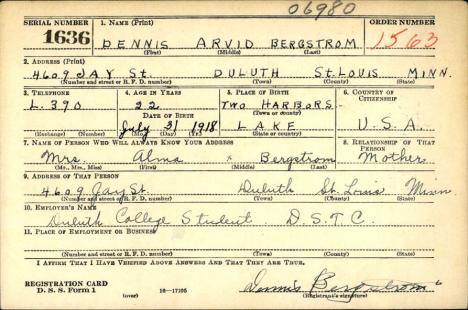 06980
SERIAL NUMBER 1. NAME (Print) ORDER NUMBER
1636 DENNIS ARVID BERGSTROM 1563
(First) (Middle) (Last)
2. ADDRESS (Print)
4609 JAY St. DULUTH St. LOUIS MINN.
(Number and street or R. F. D. number) (Town) (County) (State)
3. TELEPHONE 4. AGE IN YEARS 5. PLACE OF BIRTH 6. COUNTRY OF CITIZENSHIP
L. 390 22 TWO HARBORS
(Town or county)
DATE OF BIRTH
July 31 1918 LAKE U. S. A.
(Exchange) (Number) (Mo.) (Day) (Yr.) (State or country)
7. NAME OF PERSON WHO WILL ALWAYS KNOW YOUR ADDRESS 8. RELATIONSHIP OF THAT PERSON
Mrs. Alma x Bergstrom Mother
(Mr., Mrs., Miss) (First) (Middle) (Last)
9. ADDRESS OF THAT PERSON
4609 Jay St. Duluth St. Louis Minn.
(Number and street or R. F. D. number) (Town) (County) (State)
10. EMPLOYER'S NAME
Duluth College Student D.S.T.C.
11. PLACE OF EMPLOYMENT OR BUSINESS
(Number and street or R. F. D. number) (Town) (County) (State)
I AFFIRM THAT I HAVE VERIFIED ABOVE ANSWERS AND THAT THEY ARE TRUE.
REGISTRATION CARD
D. S. S. Form 1 (over) 16—17105 Dennis Bergstrom
(Registrant's signature)